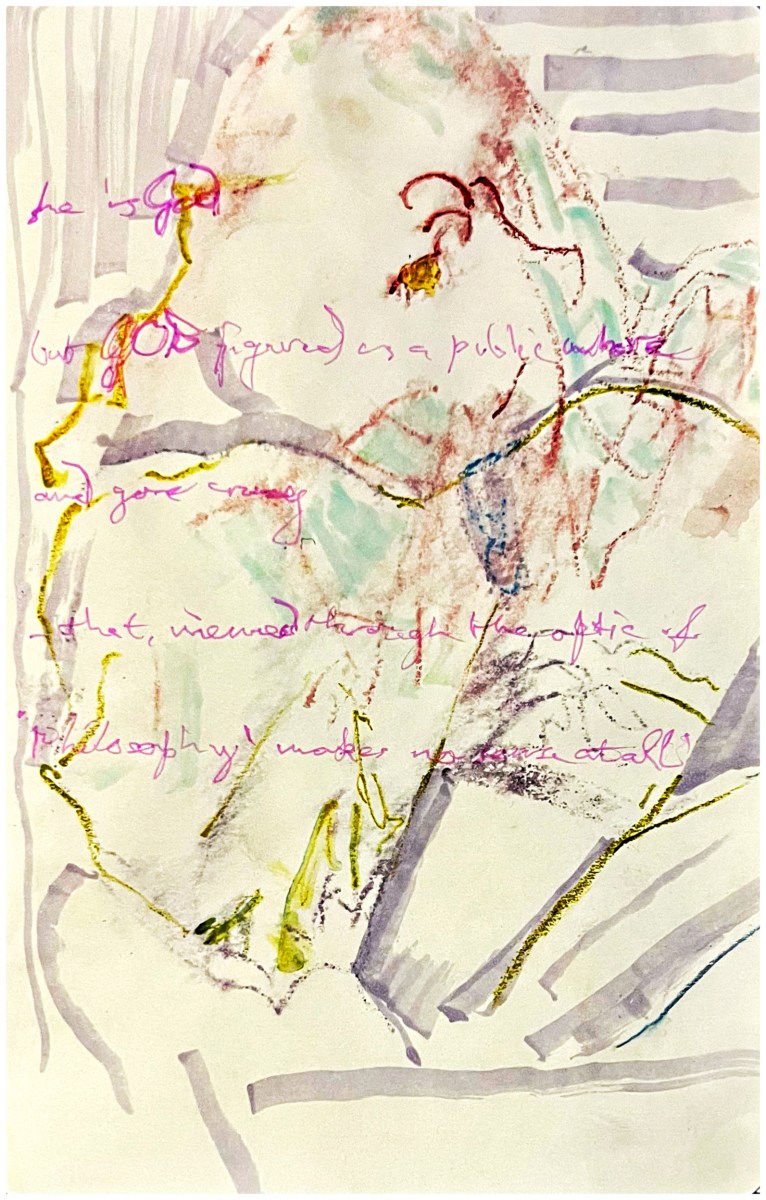 she is God
but GOD figured as a public whore
and gone crazy
– that, viewed through the optic of
'Philosophy' makes no sense at all!